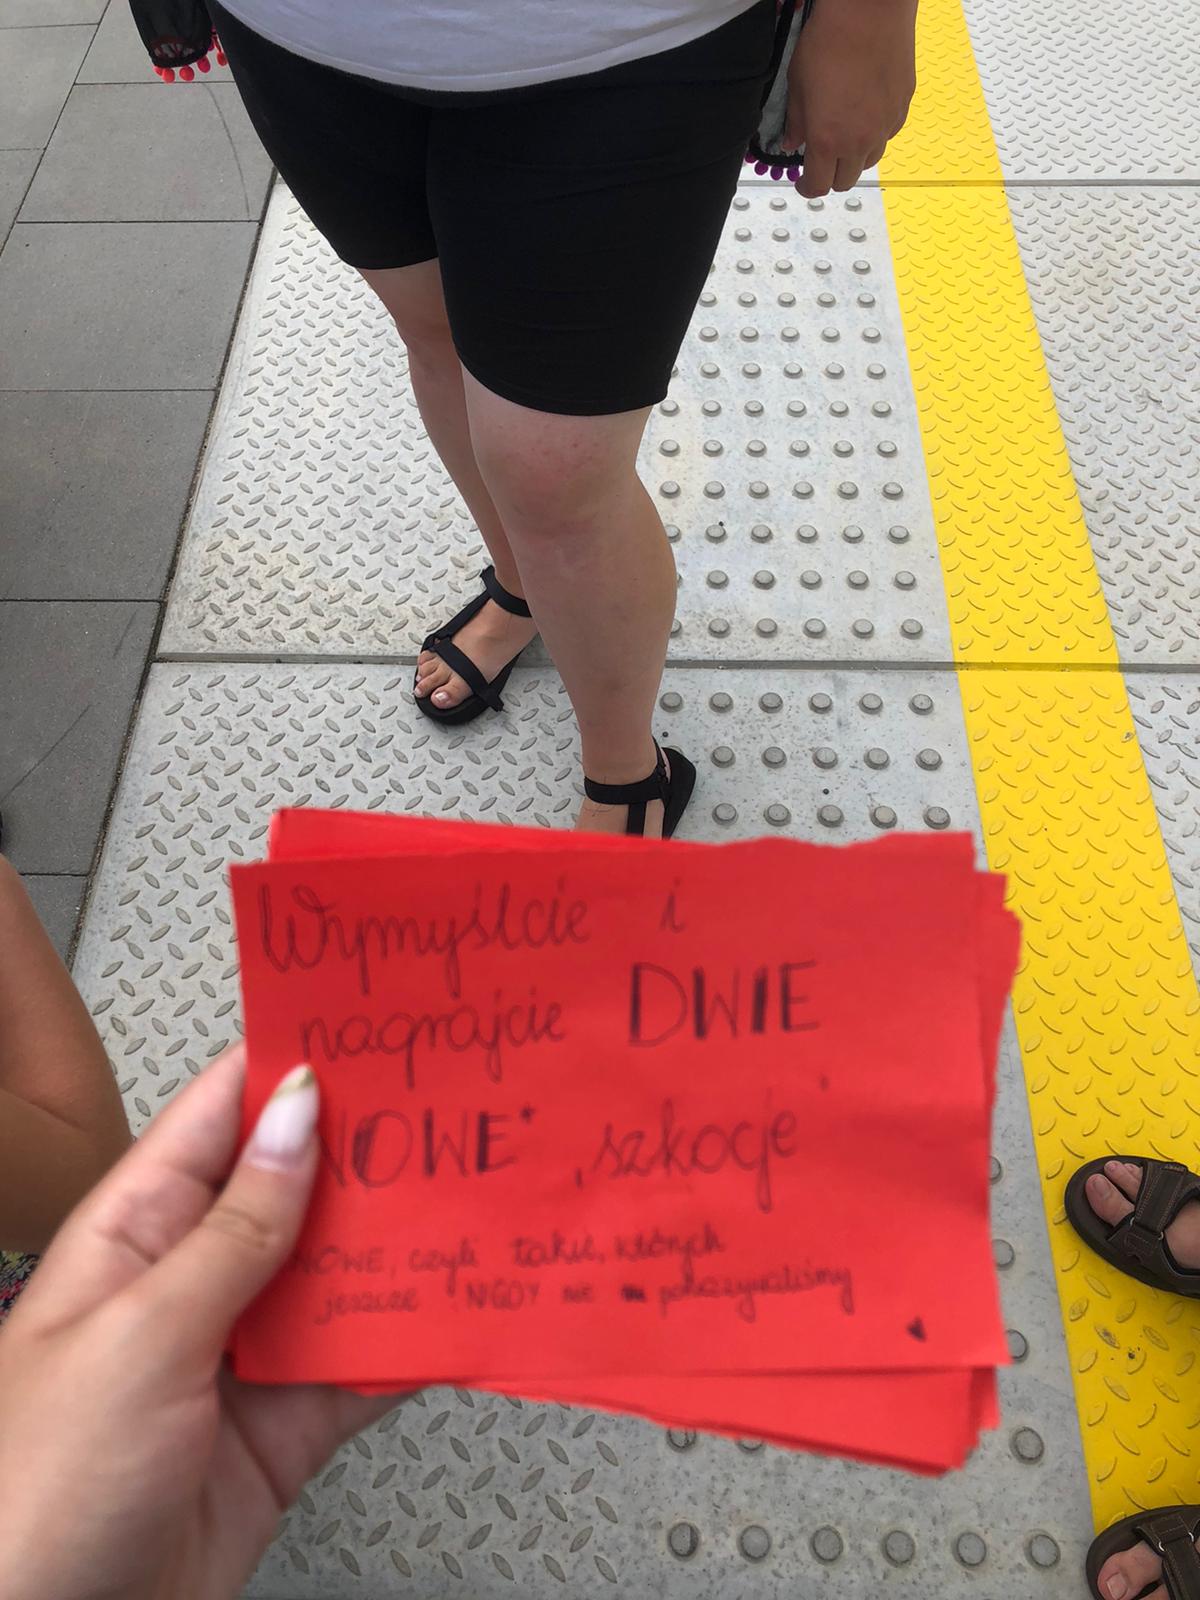 Wymyślcie i
nagrajcie DWIE
NOWE* "szkocje"
NOWE, czyli takie, których
jeszcze NIGDY nie pokazywaliśmy